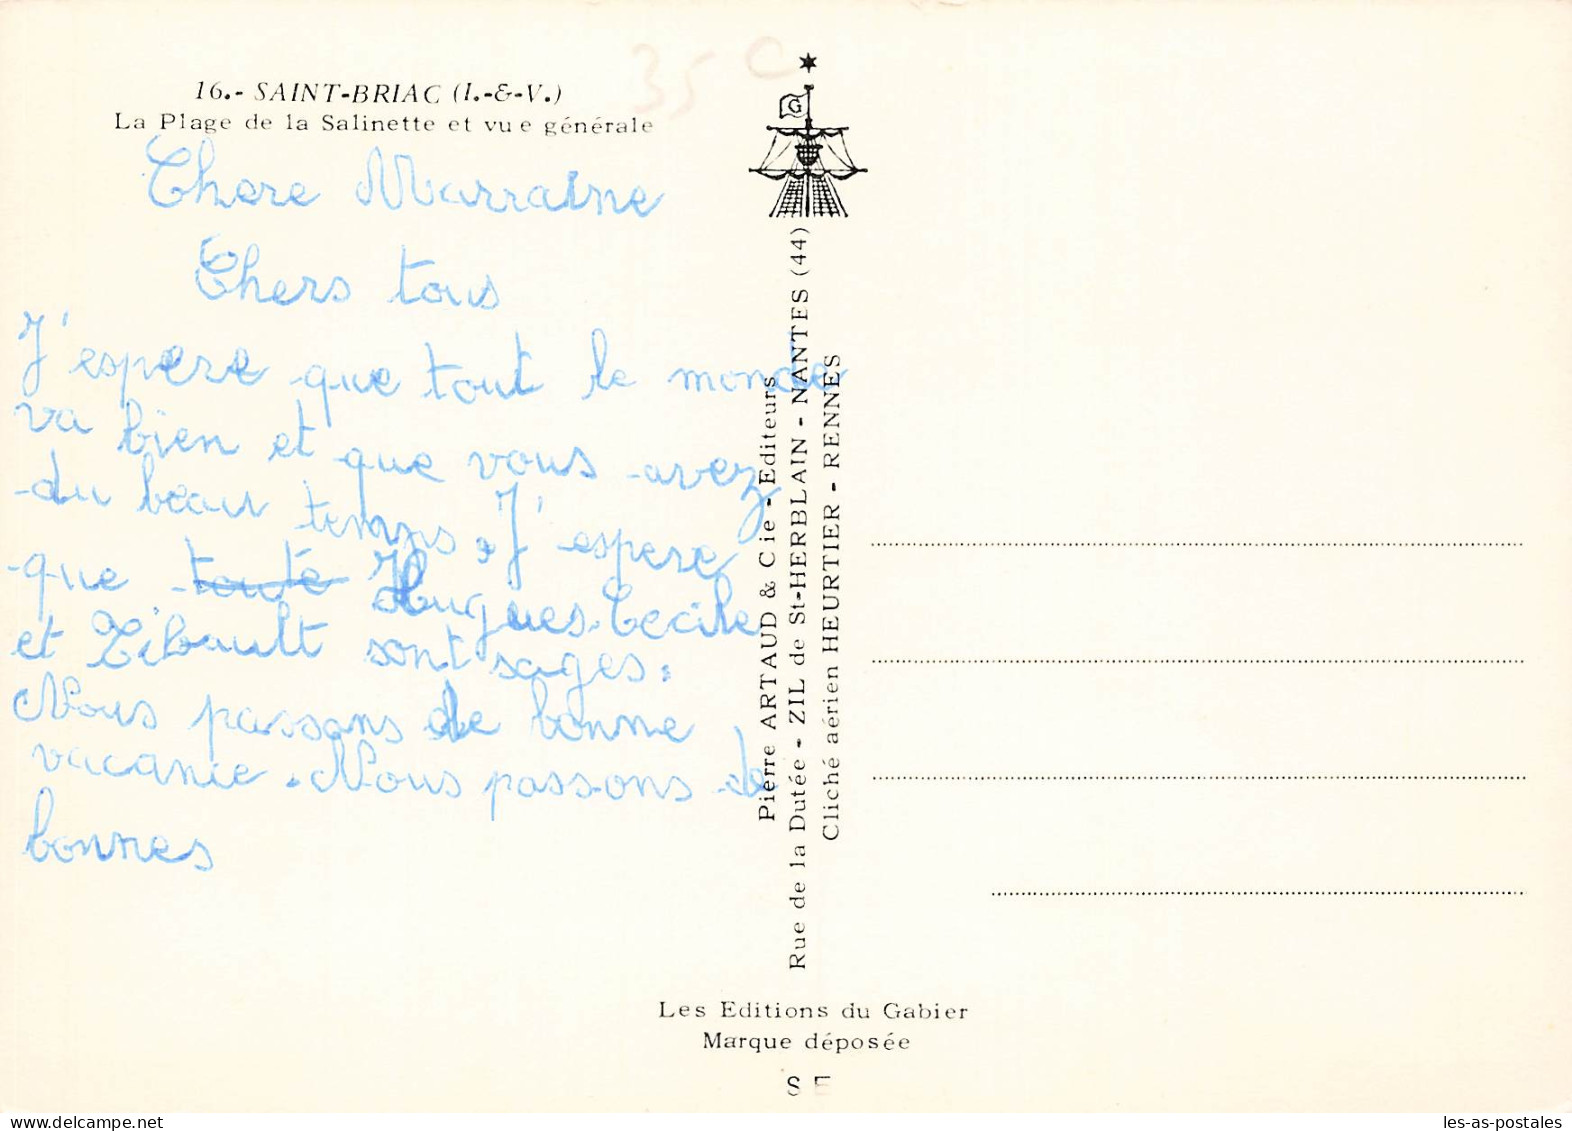 16.- SAINT-BRIAC (I.-&-V.)
La Plage de la Salinette et vue générale
35 C
Chere Marraine
Chers tous
J'espere que tout le monde
va bien et que vous avez
du beau temps. J'espere
que toute Hugues. Cecile
et Tibault sont sages.
Nous passons de bonne
vacance. Nous passons de
bonnes
G
Pierre ARTAUD & Cie - Editeurs
Rue de la Dutée - ZIL de St-HERBLAIN - NANTES (44)
Cliché aérien HEURTIER - RENNES
Les Editions du Gabier
Marque déposée
S E
delcampe.net
les-as-postales